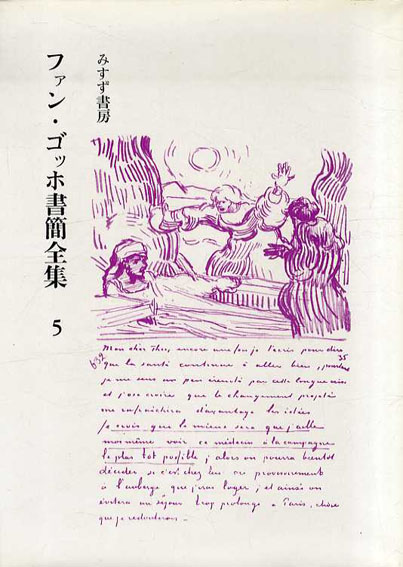 みすず書房
ファン・ゴッホ書簡全集 5
632
35
Mon cher Theo, encore une fois je t'écris pour dire
que la santé continue à aller bien, pourtant
je me sens un peu éreinté par cette longue crise
et j'ose croire que le changement projeté
me rafraichira davantage les idées
Je crois que le mieux sera que j'aille
moi même voir ce médecin à la campagne
le plus tot possible; alors on pourra bientot
décider si c'est chez lui ou provisoirement
à l'auberge que j'irai loger; et ainsi on
évitera un séjour trop prolongé à Paris, chose
que je redouterais.